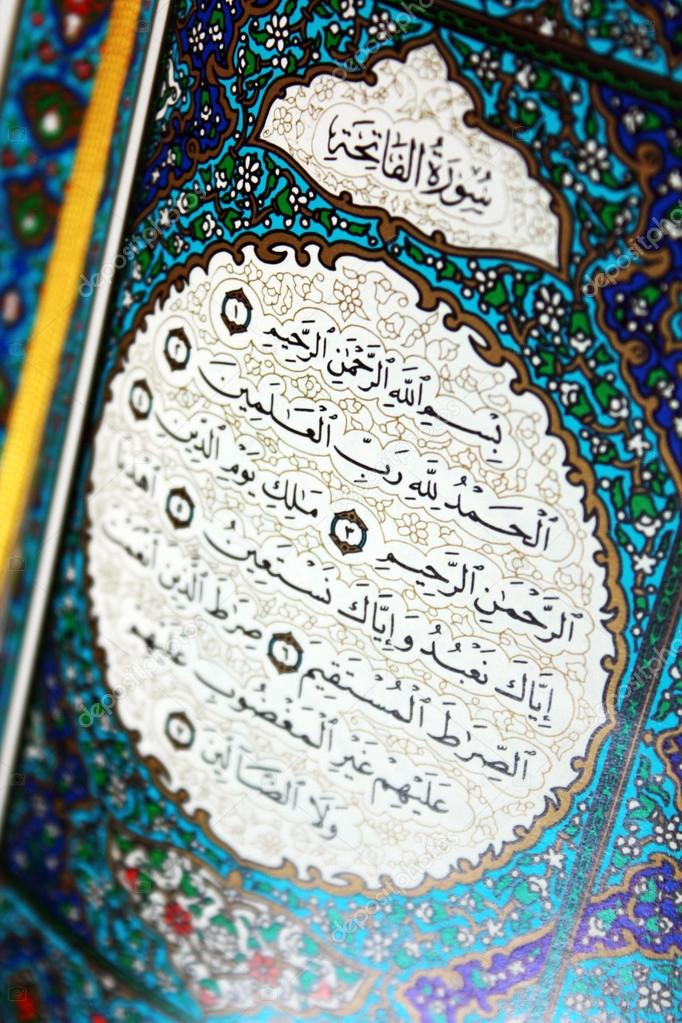 سُورَةُ الفَاتِحَةِ
بِسْمِ ٱللَّهِ ٱلرَّحْمَٰنِ ٱلرَّحِيمِ ١
ٱلْحَمْدُ لِلَّهِ رَبِّ ٱلْعَٰلَمِينَ ٢
ٱلرَّحْمَٰنِ ٱلرَّحِيمِ ٣ مَٰلِكِ يَوْمِ ٱلدِّينِ ٤
إِيَّاكَ نَعْبُدُ وَإِيَّاكَ نَسْتَعِينُ ٥ ٱهْدِنَا
ٱلصِّرَٰطَ ٱلْمُسْتَقِيمَ ٦ صِرَٰطَ ٱلَّذِينَ أَنْعَمْتَ
عَلَيْهِمْ غَيْرِ ٱلْمَغْضُوبِ عَلَيْهِمْ
وَلَا ٱلضَّآلِّينَ ٧
depositphotos